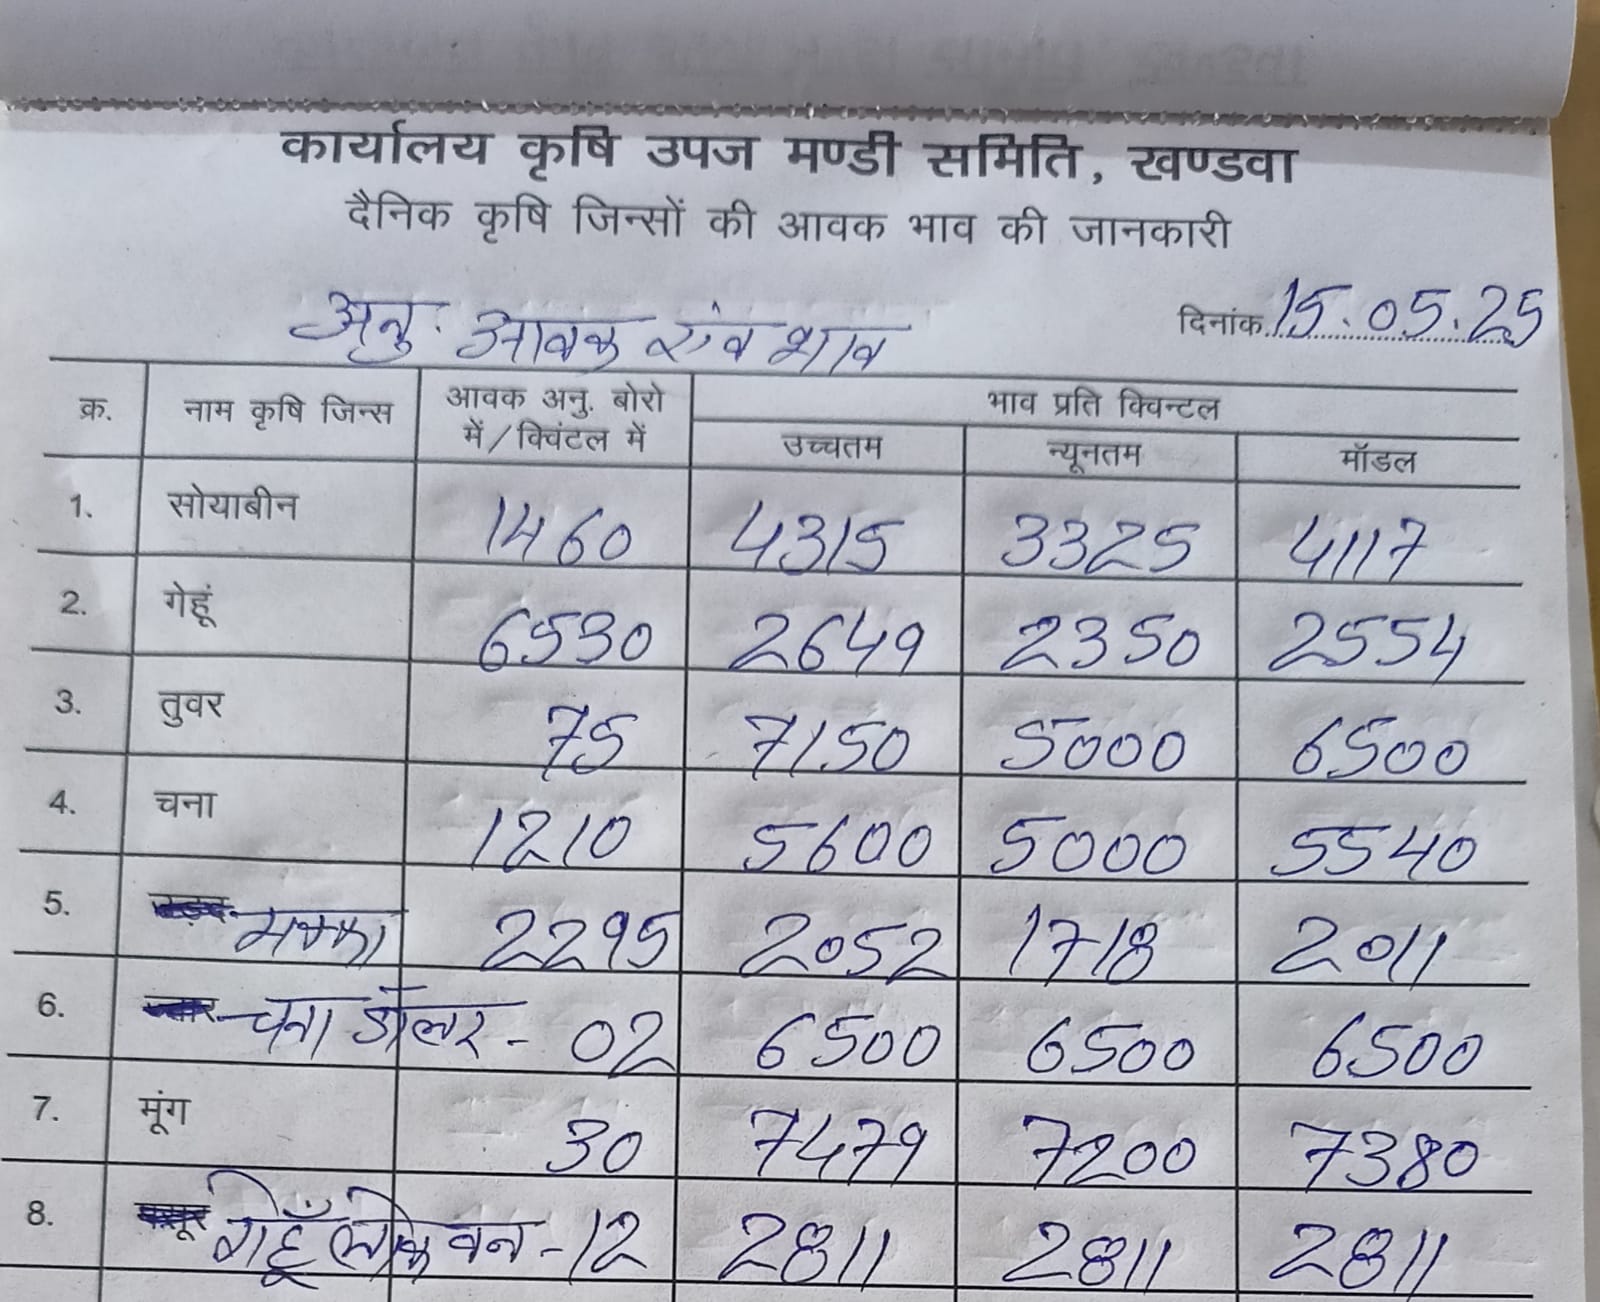 कार्यालय कृषि उपज मण्डी समिति, खण्डवा
दैनिक कृषि जिन्सों की आवक भाव की जानकारी
अनु. आवक एंव भाव दिनांक 15.05.25
क्र. नाम कृषि जिन्स आवक अनु. बोरो में/क्विंटल में भाव प्रति क्विन्टल
उच्चतम न्यूनतम मॉडल
1. सोयाबीन 1460 4315 3325 4117
2. गेहूं 6530 2649 2350 2554
3. तुवर 75 7150 5000 6500
4. चना 1210 5600 5000 5540
5. मक्का 2295 2052 1718 2011
6. चना डॉलर - 02 6500 6500 6500
7. मूंग 30 7479 7200 7380
8. गेहूँ लोक वन - 12 2811 2811 2811